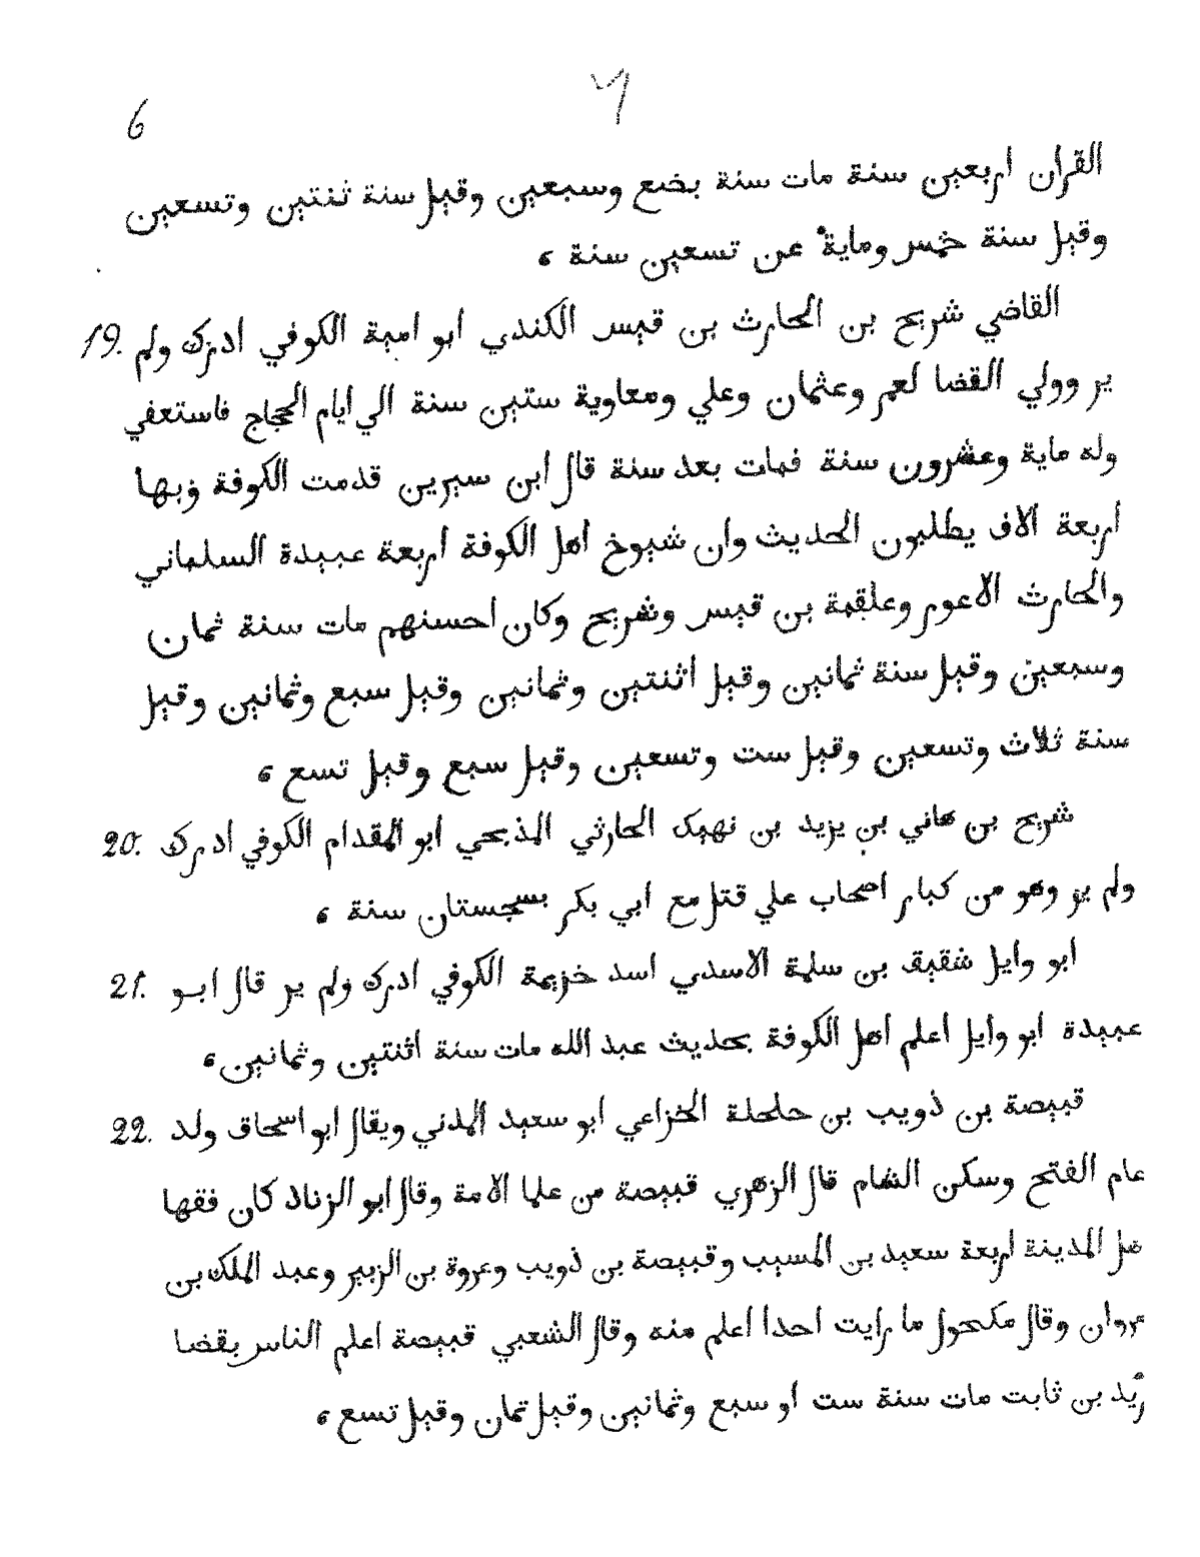 6
٦
القران اربعين سنة مات سنة بضع وسبعين وقيل سنة ثنتين وتسعين
وقيل سنة خمس وماية عن تسعين سنة ،
19. القاضي شريح بن الحارث بن قيس الكندي ابو امية الكوفي ادرك ولم
ير وولي القضا لعمر وعثمان وعلي ومعاوية ستين سنة الي ايام الحجاج فاستعفي
وله ماية وعشرون سنة فمات بعد سنة قال ابن سيرين قدمت الكوفة وبها
اربعة الاف يطلبون الحديث وان شيوخ اهل الكوفة اربعة عبيدة السلماني
والحارث الاعور وعلقمة بن قيس وشريح وكان احسنهم مات سنة ثمان
وسبعين وقيل سنة ثمانين وقيل اثنتين وثمانين وقيل سبع وثمانين وقيل
سنة ثلاث وتسعين وقيل ست وتسعين وقيل سبع وقيل تسع ،
20. شريح بن هاني بن يزيد بن نهيك الحارثي المذحجي ابو المقدام الكوفي ادرك
ولم ير وهو من كبار اصحاب علي قتل مع ابي بكر بسجستان سنة ،
21. ابو وايل شقيق بن سلمة الاسدي اسد خزيمة الكوفي ادرك ولم ير قال ابو
عبيدة ابو وايل اعلم اهل الكوفة بحديث عبد الله مات سنة اثنتين وثمانين ،
22. قبيصة بن ذويب بن حلحلة الخزاعي ابو سعيد المدني ويقال ابو اسحاق ولد
عام الفتح وسكن الشام قال الزهري قبيصة من علما الامة وقال ابو الزناد كان فقها
هل المدينة اربعة سعيد بن المسيب وقبيصة بن ذويب وعروة بن الزبير وعبد الملك بن
مروان وقال مكحول ما رايت احدا اعلم منه وقال الشعبي قبيصة اعلم الناس بقضا
زيد بن ثابت مات سنة ست او سبع وثمانين وقيل ثمان وقيل تسع ،